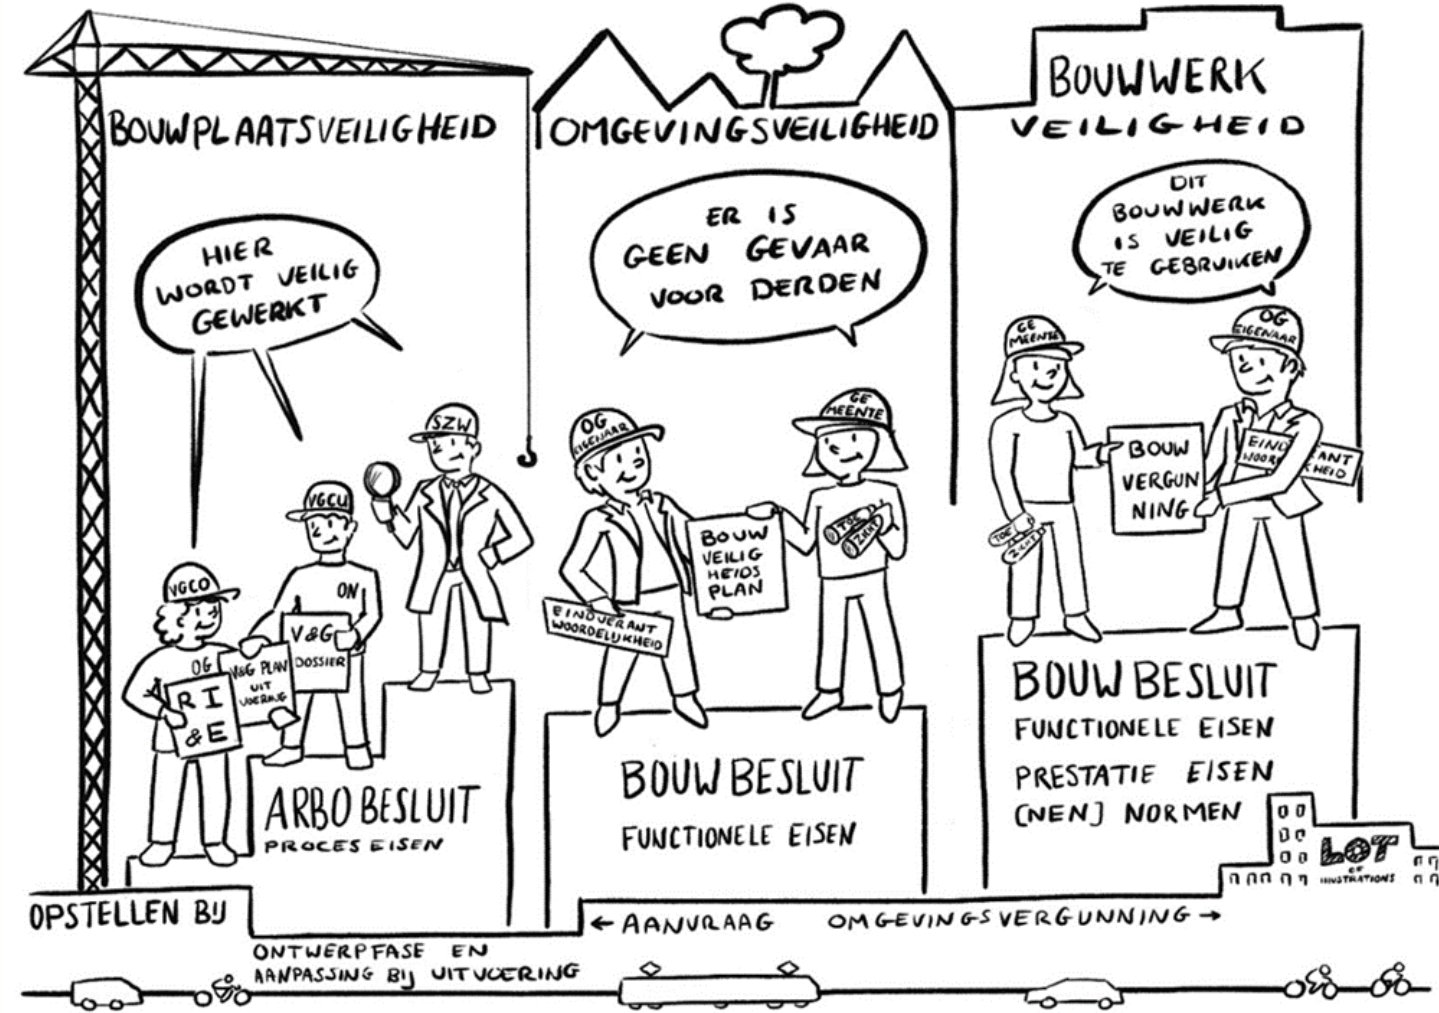 BOUWPLAATSVEILIGHEID
HIER
WORDT VEILIG
GEWERKT
SZW
VGCU
VGCO
ON
V&G
DOSSIER
OG
V&G PLAN
UIT
VOERING
R I
& E
ARBO BESLUIT
PROCES EISEN
OPSTELLEN BIJ
ONTWERPFASE EN
AANPASSING BIJ UITVOERING
OMGEVINGSVEILIGHEID
ER IS
GEEN GEVAAR
VOOR DERDEN
OG
EIGENAAR
GE
MEENTE
TOE
ZICHT
BOUW
VEILIG
HEIDS
PLAN
EINDVERANT
WOORDELIJKHEID
BOUW BESLUIT
FUNCTIONELE EISEN
← AANVRAAG OMGEVINGSVERGUNNING →
BOUWWERK
VEILIGHEID
DIT
BOUWWERK
IS VEILIG
TE GEBRUIKEN
GE
MEENTE
OG
EIGENAAR
BOUW
VERGUN
NING
EIND ANT
WOOR KHEID
TOE
ZICHT
BOUW BESLUIT
FUNCTIONELE EISEN
PRESTATIE EISEN
(NEN) NORMEN
LOT
OF
ILLUSTRATIONS